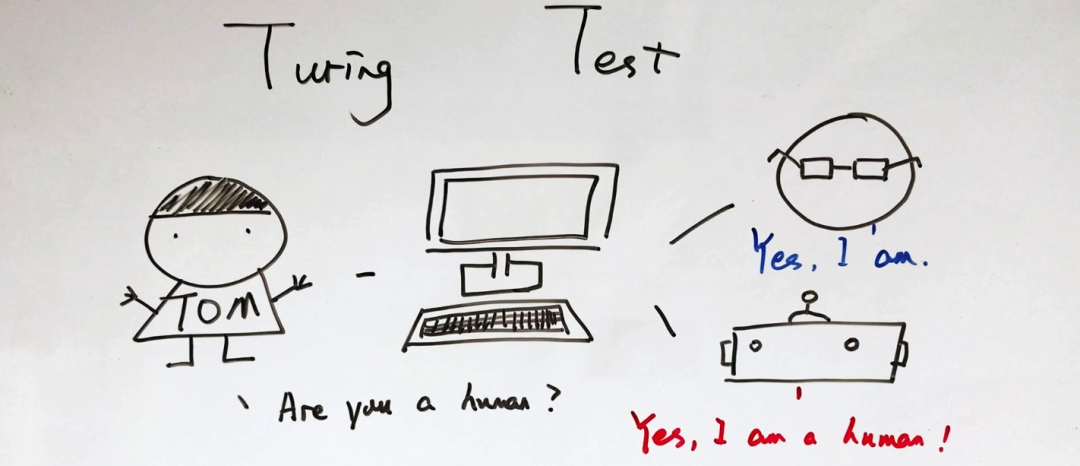 Turing Test
TOM
Are you a human?
Yes, I am.
Yes, I am a human!